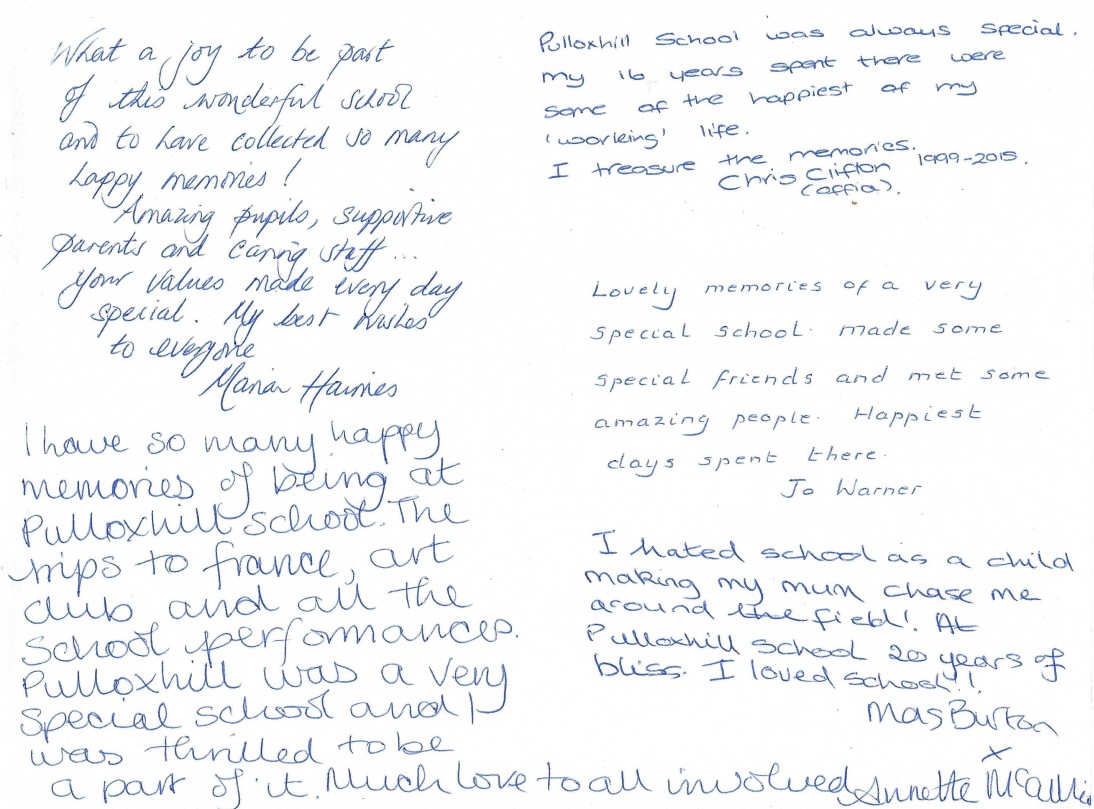 What a joy to be part
of this wonderful school
and to have collected so many
happy memories!
Amazing pupils, supportive
parents and caring staff...
Your values made every day
special. My best wishes
to everyone
Marian Haimes
I have so many happy
memories of being at
Pulloxhill school. The
trips to france, art
club and all the
school performances.
Pulloxhill was a very
special school and I
was thrilled to be
a part of it. Much love to all involved Annette
Pulloxhill School was always special.
My 16 years spent there were
some of the happiest of my
'working' life.
I treasure the memories.
Chris Clifton 1999-2015.
(affia).
Lovely memories of a very
special school. made some
special friends and met some
amazing people. Happiest
days spent there.
Jo Warner
I hated school as a child
making my mum chase me
around the field! At
Pulloxhill School 20 years of
bliss. I loved school!!
Mas Burton
x